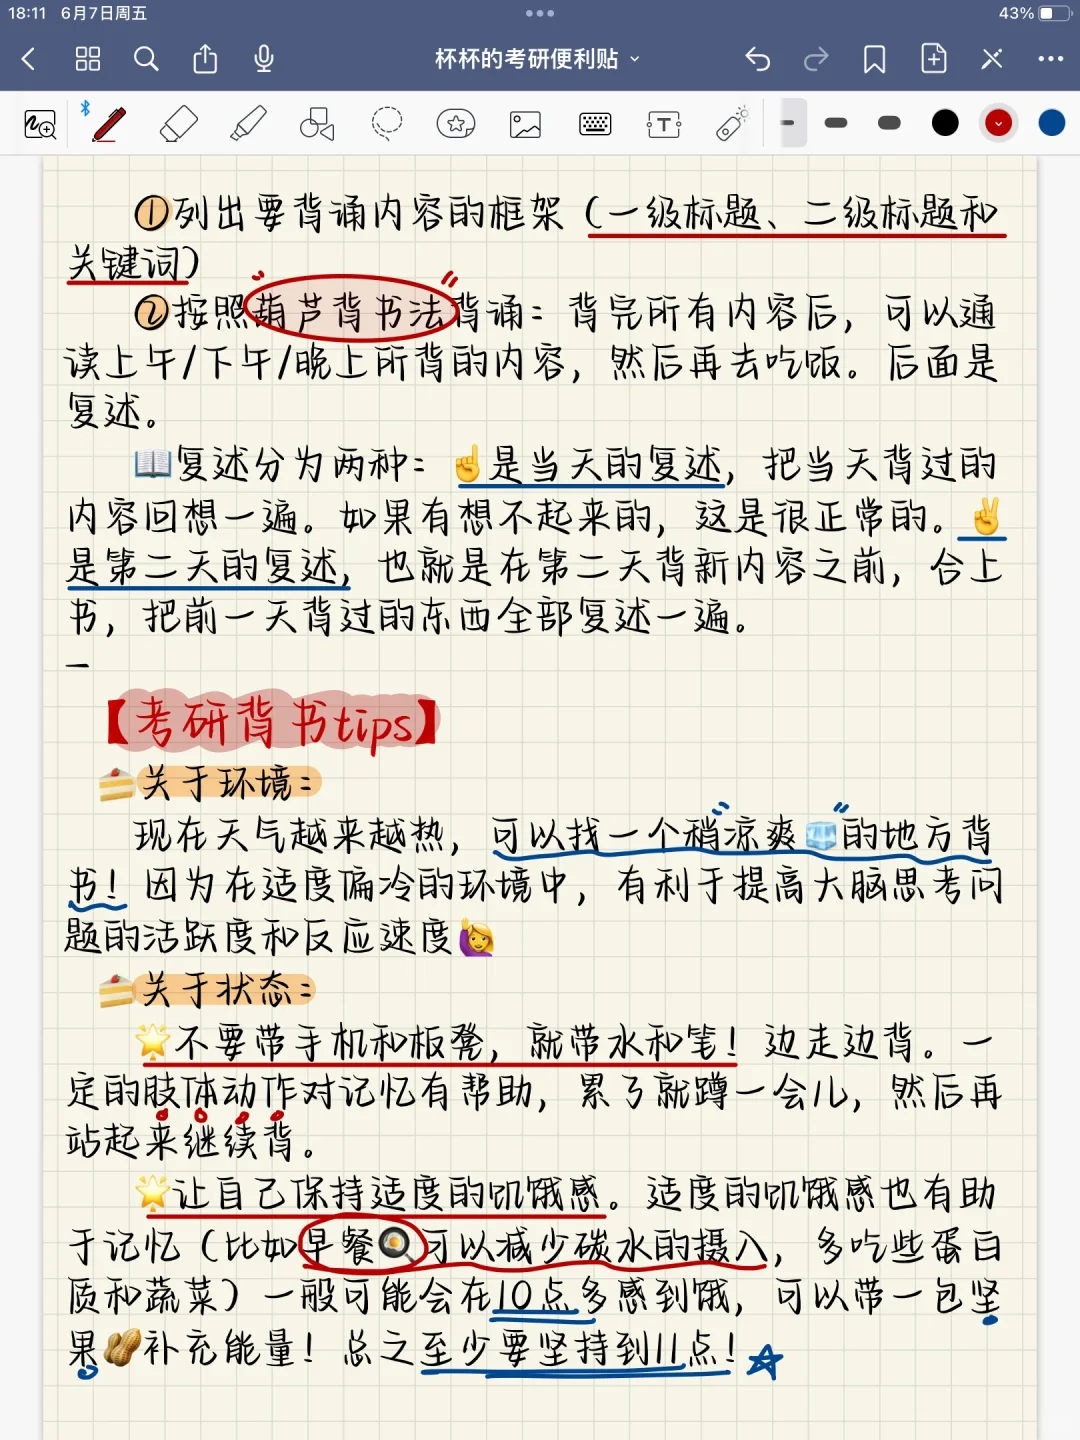 18:11 6月7日周五 43%
杯杯的考研便利贴
T
①列出要背诵内容的框架（一级标题、二级标题和
关键词）
②按照葫芦背书法背诵：背完所有内容后，可以通
读上午/下午/晚上所背的内容，然后再去吃饭。后面是
复述。
📖复述分为两种：☝是当天的复述，把当天背过的
内容回想一遍。如果有想不起来的，这是很正常的。✌
是第二天的复述，也就是在第二天背新内容之前，合上
书，把前一天背过的东西全部复述一遍。
—
【考研背书tips】
🍰关于环境：
现在天气越来越热，可以找一个稍凉爽🧊的地方背
书！因为在适度偏冷的环境中，有利于提高大脑思考问
题的活跃度和反应速度🙋‍♀️
🍰关于状态：
🌟不要带手机和板凳，就带水和笔！边走边背。一
定的肢体动作对记忆有帮助，累了就蹲一会儿，然后再
站起来继续背。
🌟让自己保持适度的饥饿感。适度的饥饿感也有助
于记忆（比如早餐🍳可以减少碳水的摄入，多吃些蛋白
质和蔬菜）一般可能会在10点多感到饿，可以带一包坚
果🥜补充能量！总之至少要坚持到11点！